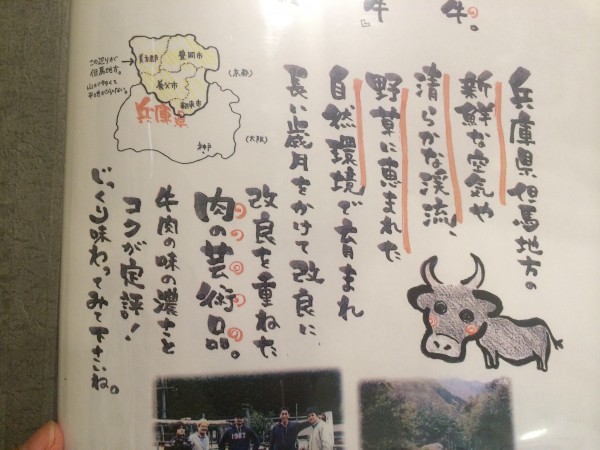 牛。
牛
兵庫県但馬地方の
新鮮な空気や
清らかな渓流、
野草に恵まれた
自然環境で育まれ
長い歳月をかけて改良に
改良を重ねた
肉の芸術品。
牛肉の味の濃さと
コクが定評!
じっくり味わってみて下さいね。
この辺りが
但馬地方。
美方郡
豊岡市
養父市
朝来市
兵庫県
神戸
(京都)
(大阪)
1987